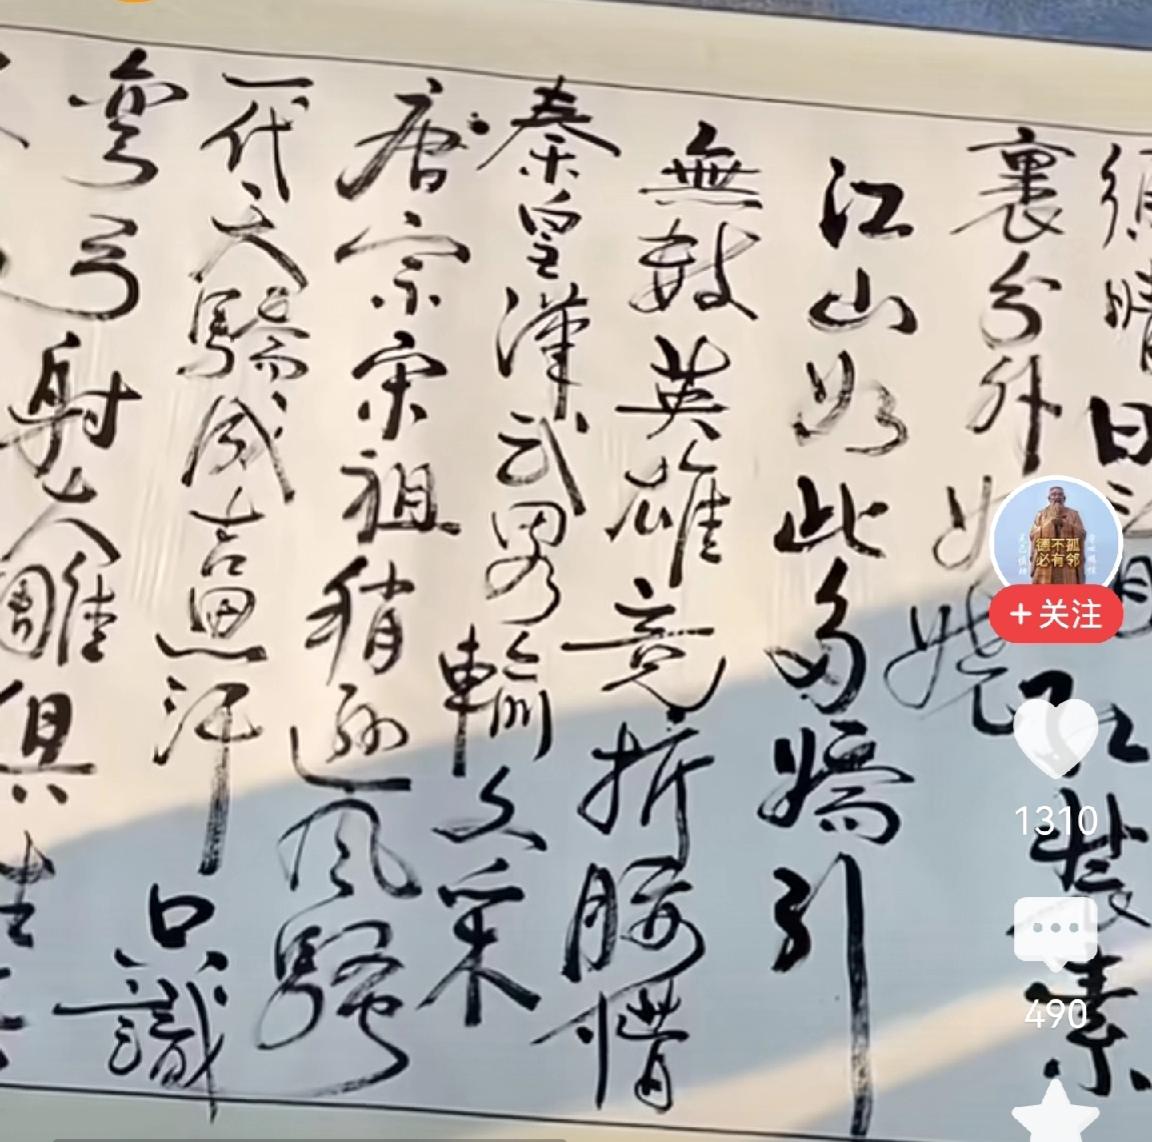 須晴日紅裝素
裏分外妖嬈
江山如此多嬌引
無數英雄竞折腰惜
秦皇漢武畧輸文采
唐宗宋祖稍逊风騷
一代天驕成吉思汗只識
彎弓射大雕俱往
德不孤
必有邻
+关注
1310
490